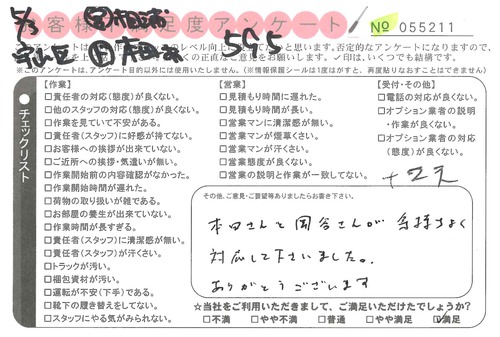 お客様満足度アンケート
№ 055211
595
守山区
このアンケートは、作
のレベル向上に
と思います。否定的なアンケートになりますので、
くの正直なご意見をお願いします。✓印は、いくつでも結構です。
※このアンケートは、アンケート目的以外には使用いたしません。(※情報保留シールは1度はがすと、再度貼りなおすことはできません)
チェックリスト
【作業】
□責任者の対応(態度)が良くない。
□他のスタッフの対応(態度)が良くない。
□作業を見ていて不安がある。
□責任者(スタッフ)に好感が持てない。
□お客様への挨拶が出来ていない。
□ご近所への挨拶・気遣いが無い。
□作業開始前の内容確認がなかった。
□作業開始時間が遅れた。
□荷物の取り扱いが雑である。
□お部屋の養生が出来ていない。
□作業時間が長すぎる。
□責任者(スタッフ)に清潔感が無い。
□責任者(スタッフ)が汗くさい。
□トラックが汚い。
□梱包資材が汚い。
□運転が不安(下手)である。
□靴下の履き替えをしてない。
□スタッフにやる気がみられない。
【営業】
□見積もり時間に遅れた。
□見積もり時間が長い。
□営業マンに清潔感が無い。
□営業マンが煙草くさい。
□営業マンが汗くさい。
□営業態度が良くない。
□営業の説明と作業が一致してない。
【受付・その他】
□電話の対応が良くない。
□オプション業者の説明・作業が良くない。
□オプション業者の対応(態度)が良くない。
その他、ご意見・ご要望等ありましたらお書き下さい。
本田さんと岡谷さんが気持ちよく
対応して下さいました。
ありがとうございます
☆当社をご利用いただきまして、ご満足いただけたでしょうか?
□不満 □やや不満 □普通 □やや満足 ☑満足